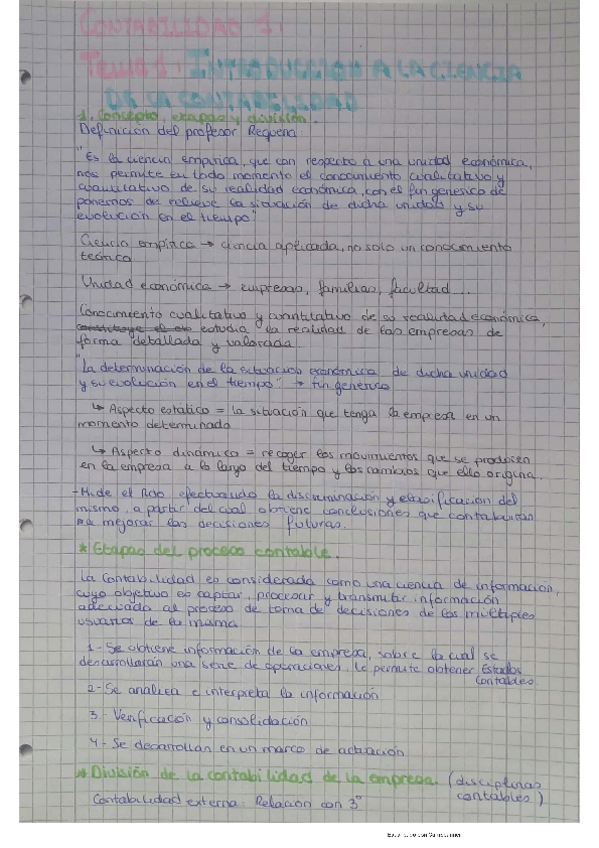 CONTABILIDAD 1.
TEMA 1: INTRODUCCION A LA CIENCIA
DE LA CONTABILIDAD
1. Concepto, etapas y división.
Definición del profesor Requena:
"Es la ciencia empírica, que con respecto a una unidad económica,
nos permite en todo momento el conocimiento cualitativo y
cuantitativo de su realidad económica, con el fin generico de
ponernos de relieve la situación de dicha unidad y su
evolución en el tiempo"
Ciencia empírica → ciencia aplicada, no solo un conocimiento
teórico
Unidad económica → empresas, familias, facultad...
Conocimiento cualitativo y cuantitativo de su realidad económica,
estudia la realidad de las empresas de
forma detallada y valorada
"La determinación de la situación económica de dicha unidad
y su evolución en el tiempo" → fin generico
↳ Aspecto estático = la situación que tenga la empresa en un
momento determinado
↳ Aspecto dinámico = recoger los movimientos que se producen
en la empresa a lo largo del tiempo y los cambios que ello origina.
- Mide el efectuando la discriminación y clasificación del
mismo, a partir del cual obtiene conclusiones que
mejorar las decisiones futuras.
* Etapas del proceso contable.
La contabilidad es considerada como una ciencia de información,
cuyo objetivo es captar, procesar y transmitir información
adecuada al proceso de toma de decisiones de los múltiples
usuarios de la misma
1- Se obtiene información de la empresa, sobre la cual se
desarrollarán una serie de operaciones, le permite obtener Estados
Contables
2- Se analiza e interpreta la información
3- Verificación y consolidación
4- Se desarrollan en un marco de actuación
* División de la contabilidad de la empresa. (disciplinas
contables)
Contabilidad externa: Relación con 3º